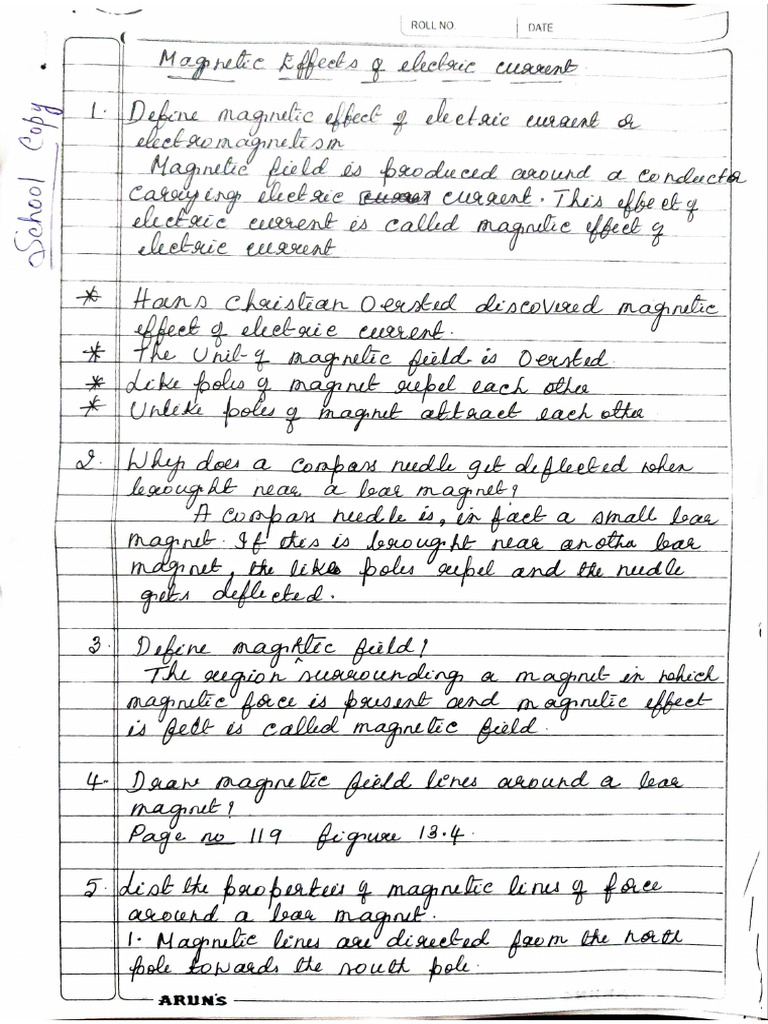 ROLL NO. DATE
Magnetic Effects of electric current
School Copy
1. Define magnetic effect of electric current or
electromagnetism
Magnetic field is produced around a conductor
carrying electric current. This effect of
electric current is called magnetic effect of
electric current
* Hans Christian Oersted discovered magnetic
effect of electric current.
* The Unit of magnetic field is Oersted.
* Like poles of magnet repel each other
* Unlike poles of magnet attract each other
2. Why does a compass needle get deflected when
brought near a bar magnet?
A compass needle is, in fact a small bar
magnet. If this is brought near another bar
magnet, the like poles repel and the needle
gets deflected.
3. Define magnetic field?
The region surrounding a magnet in which
magnetic force is present and magnetic effect
is felt is called magnetic field.
4. Draw magnetic field lines around a bar
magnet?
Page no 119 figure 13.4.
5. List the properties of magnetic lines of force
around a bar magnet.
1. Magnetic lines are directed from the north
pole towards the south pole.
ARUN'S